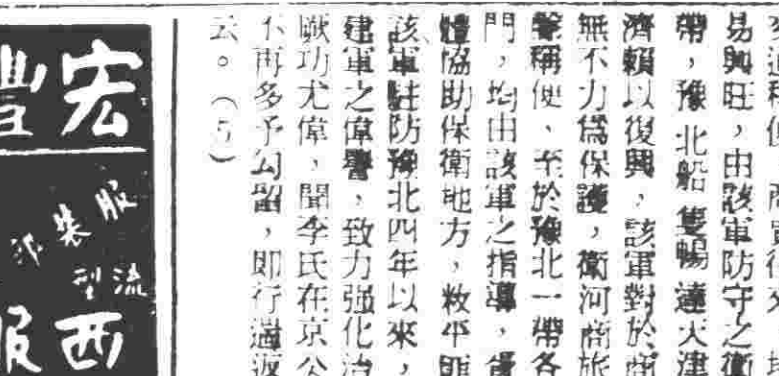 易興旺，由該軍防守之衛
帶，豫北船隻暢達天津
濟賴以復興，該軍對於商
無不力爲保護，衛河商旅
稱便、至於豫北一帶各
門，均由該軍之指導，
體協助保衛地方，敉平匪
該軍駐防豫北四年以來，
建軍之偉譽，致力强化治
厥功尤偉，聞李氏在京公
不再多予勾留，即行遄返
云。（5）
宏豐
服裝
流型
西服